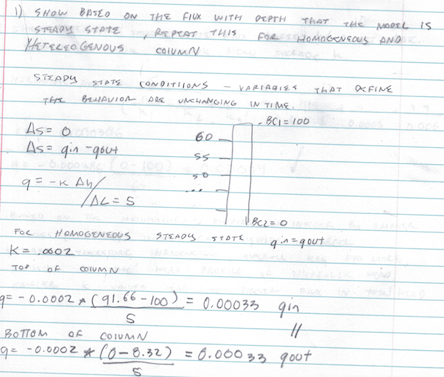 1) SHOW BASED ON THE FLUX WITH DEPTH THAT THE MODEL IS
STEADY STATE , REPEAT THIS FOR HOMOGENEOUS AND
HETEROGENOUS COLUMN
STEADY STATE CONDITIIONS - VARIABLES THAT DEFINE
THE BEHAVIOR ARE UNCHANGING IN TIME.
BC1 = 100
ΔS = 0
60
ΔS = qin - qout
55
50
q = -K Δh
/ΔL = 5
...
BC2 = 0
FOR HOMOGENEOUS STEADY STATE qin = qout
K = .0002
TOP OF COLUMN
q = -0.0002 * (91.66 - 100) = 0.00033 qin
5
//
BOTTOM OF COLUMN
q = -0.0002 * (0 - 8.32) = 0.00033 qout
5